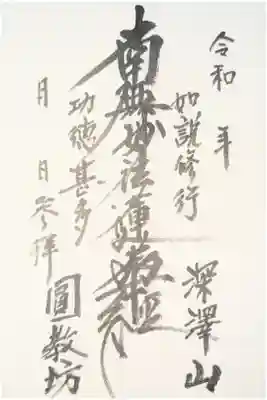 令和 年
如説修行
深澤山
南無妙法蓮華経
功徳甚多
月 日参拝
圓教坊